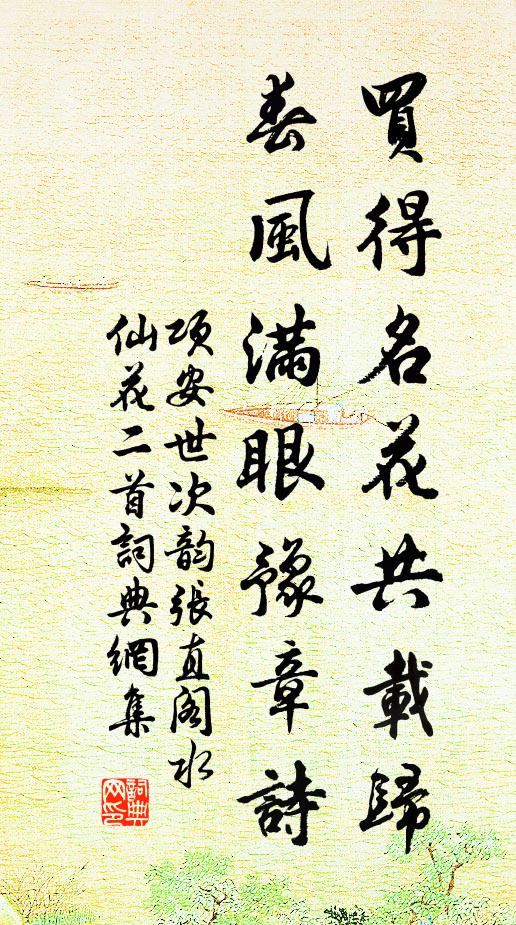 買得名花共載歸
春風滿眼豫章詩
項安世次韵張直阁水
仙花二首詞典網集
詞典
网印